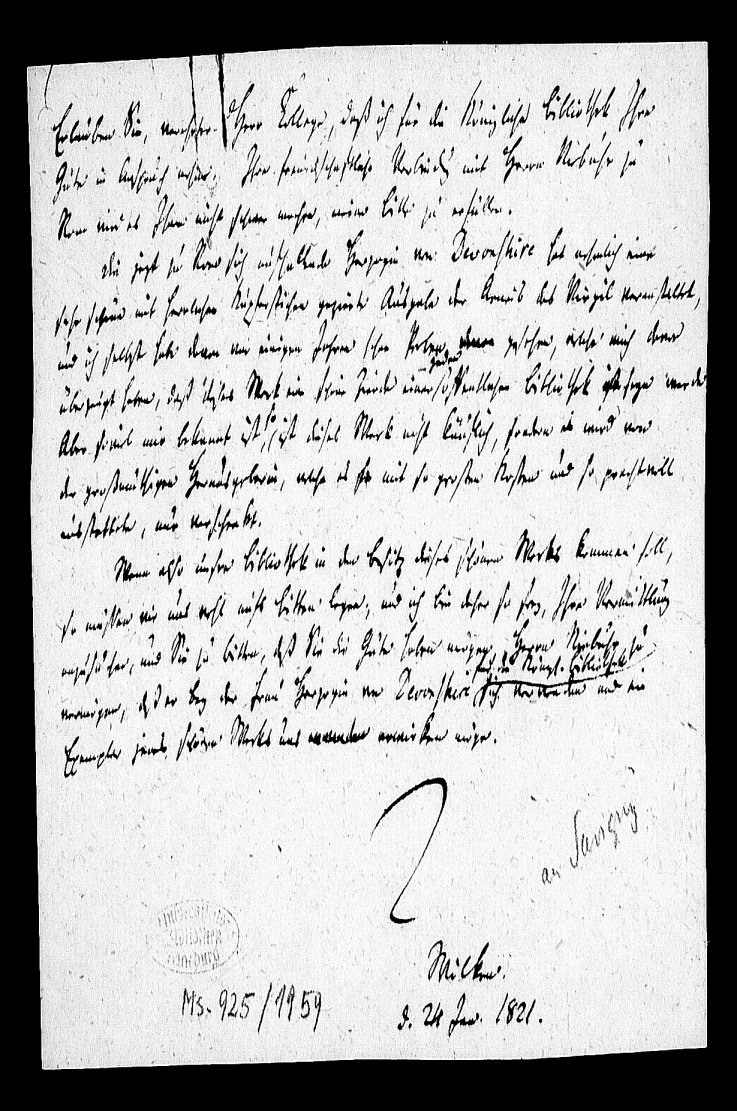 Erlauben Sie, verehrter Herr College, daß ich für die Königliche Bibliothek Ihre
Güte in Anspruch nehme. Ihre freundschaftliche Verbindg mit Herrn Niebuhr zu
Rom wird es Ihnen nicht schwer machen, meine Bitte zu erfüllen.
Die jetzt zu Rom sich aufhaltende Herzogin von Devonshire hat nehmlich eine
sehr schöne mit herrlichen Kupferstichen gezierte Ausgabe der Aeneis des Virgil veranstaltet,
und ich selbst habe davon vor einigen Jahren schon Proben gesehen, welche mich davon
überzeugt haben, daß dieses Werk eine schöne Zierde einer jeden öffentlichen Bibliothek seyn werde
Aber soviel mir bekannt ist, so ist dieses Werk nicht käuflich, sondern es wird von
der großmüthigen Herausgeberin, welche es mit so großen Kosten und so prachtvoll
ausstattete, nur verschenkt.
Wenn also unsre Bibliothek in den Besitz dieses schönen Werks kommen soll,
so müssen wir uns wohl aufs Bitten legen; und ich bin daher so frey, Ihre Vermittlung
anzusuchen, und Sie zu bitten, daß Sie die Güte haben mögen, Herrn Niebuhr zu
vermögen, daß er bey der Frau Herzogin von Devonshire für die Königl. Bibliothek sich verwenden und ein
Exemplar jenes schönen Werks uns erwirken möge.
an Savigny
Wilken.
d. 24 Jan. 1821.
Ms. 925/1959